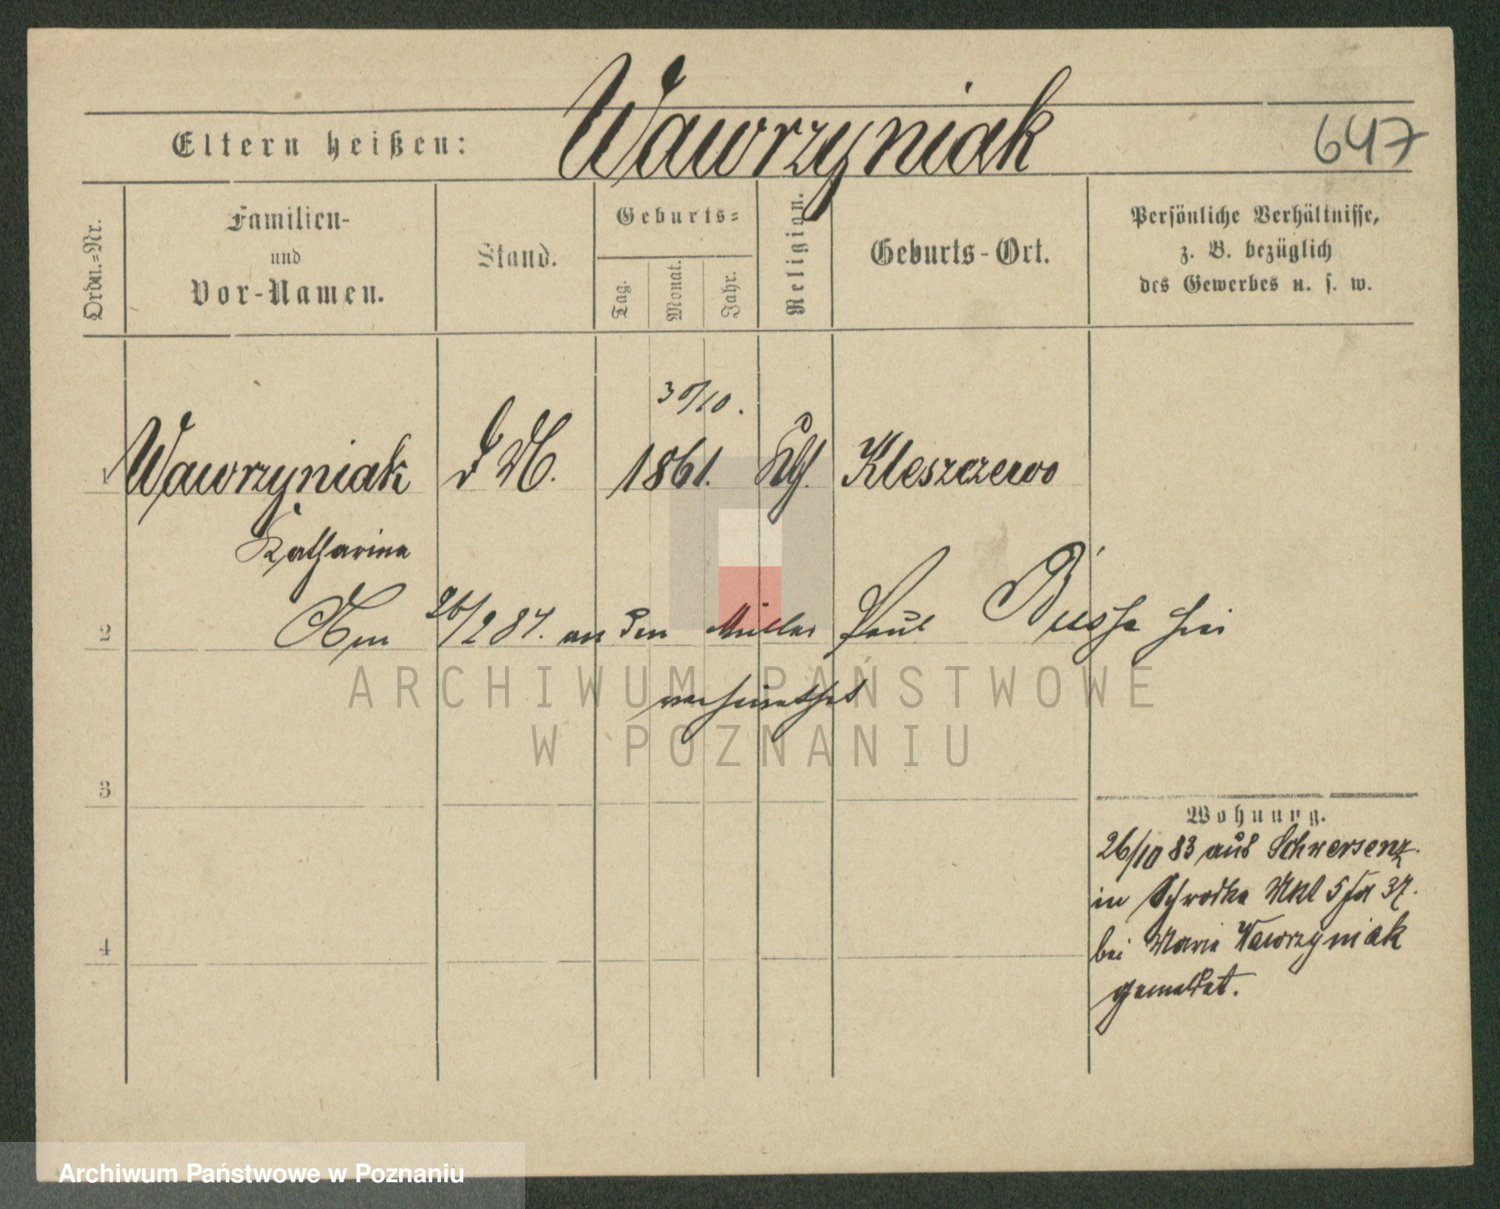 Wawrzyniak
Eltern heißen:
647
Ordn.=Nr.
Familien-
und
Vor-Namen.
Stand.
Geburts=
Tag.
Monat.
Jahr.
Religion.
Geburts-Ort.
Persönliche Verhältnisse,
z. B. bezüglich
des Gewerbes u. s. w.
30/10.
1 Wawrzyniak D M. 1861. Kth. Kleszczewo
Katharina
2 Am 26/2 87. an den Müller Paul Busse hier
verheirathet
ARCHIWUM PAŃSTWOWE
W POZNANIU
3
Wohnung.
26/10 83 aus Schwersenz
in Schrodka Mkt 5 37.
4
bei Marie Wawrzyniak
gemeldet.
Archiwum Państwowe w Poznaniu